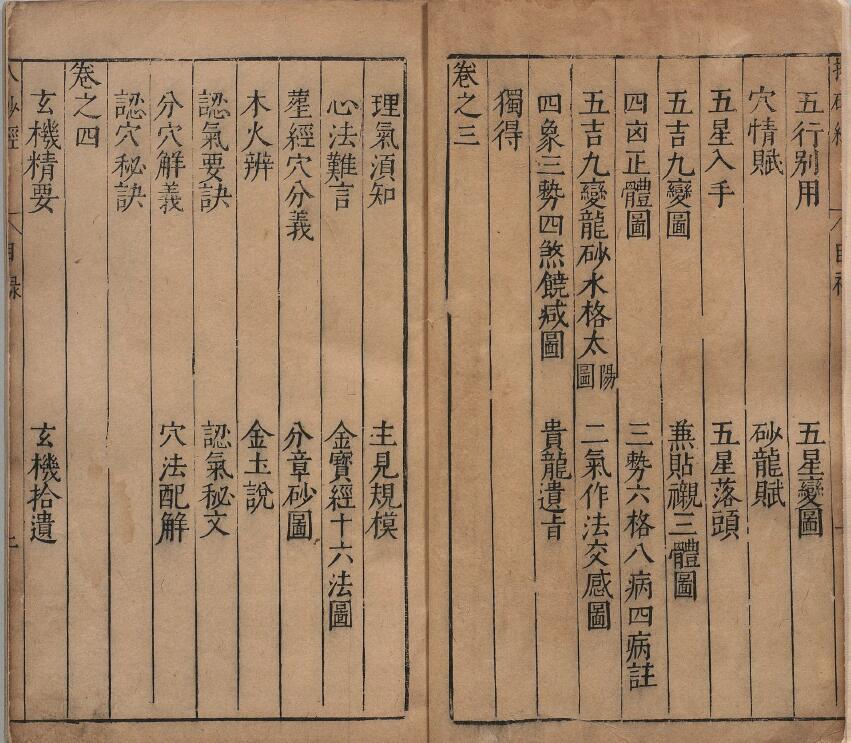 五行别用 五星變圖
穴情賦 砂龍賦
五星入手 五星落頭
五吉九變圖 兼貼襯三體圖
四凶正體圖 三勢六格八病四病註
五吉九變龍砂水格太陽圖 二氣作法交感圖
四象三勢四煞饒减圖 貴龍遺旨
獨得
卷之三
理氣須知 主見規模
心法難言 金寶經十六法圖
葬經穴分義 分章砂圖
木火辨 金土說
認氣要訣 認氣秘文
分穴解義 穴法配解
認穴秘訣
卷之四
玄機精要 玄機拾遺